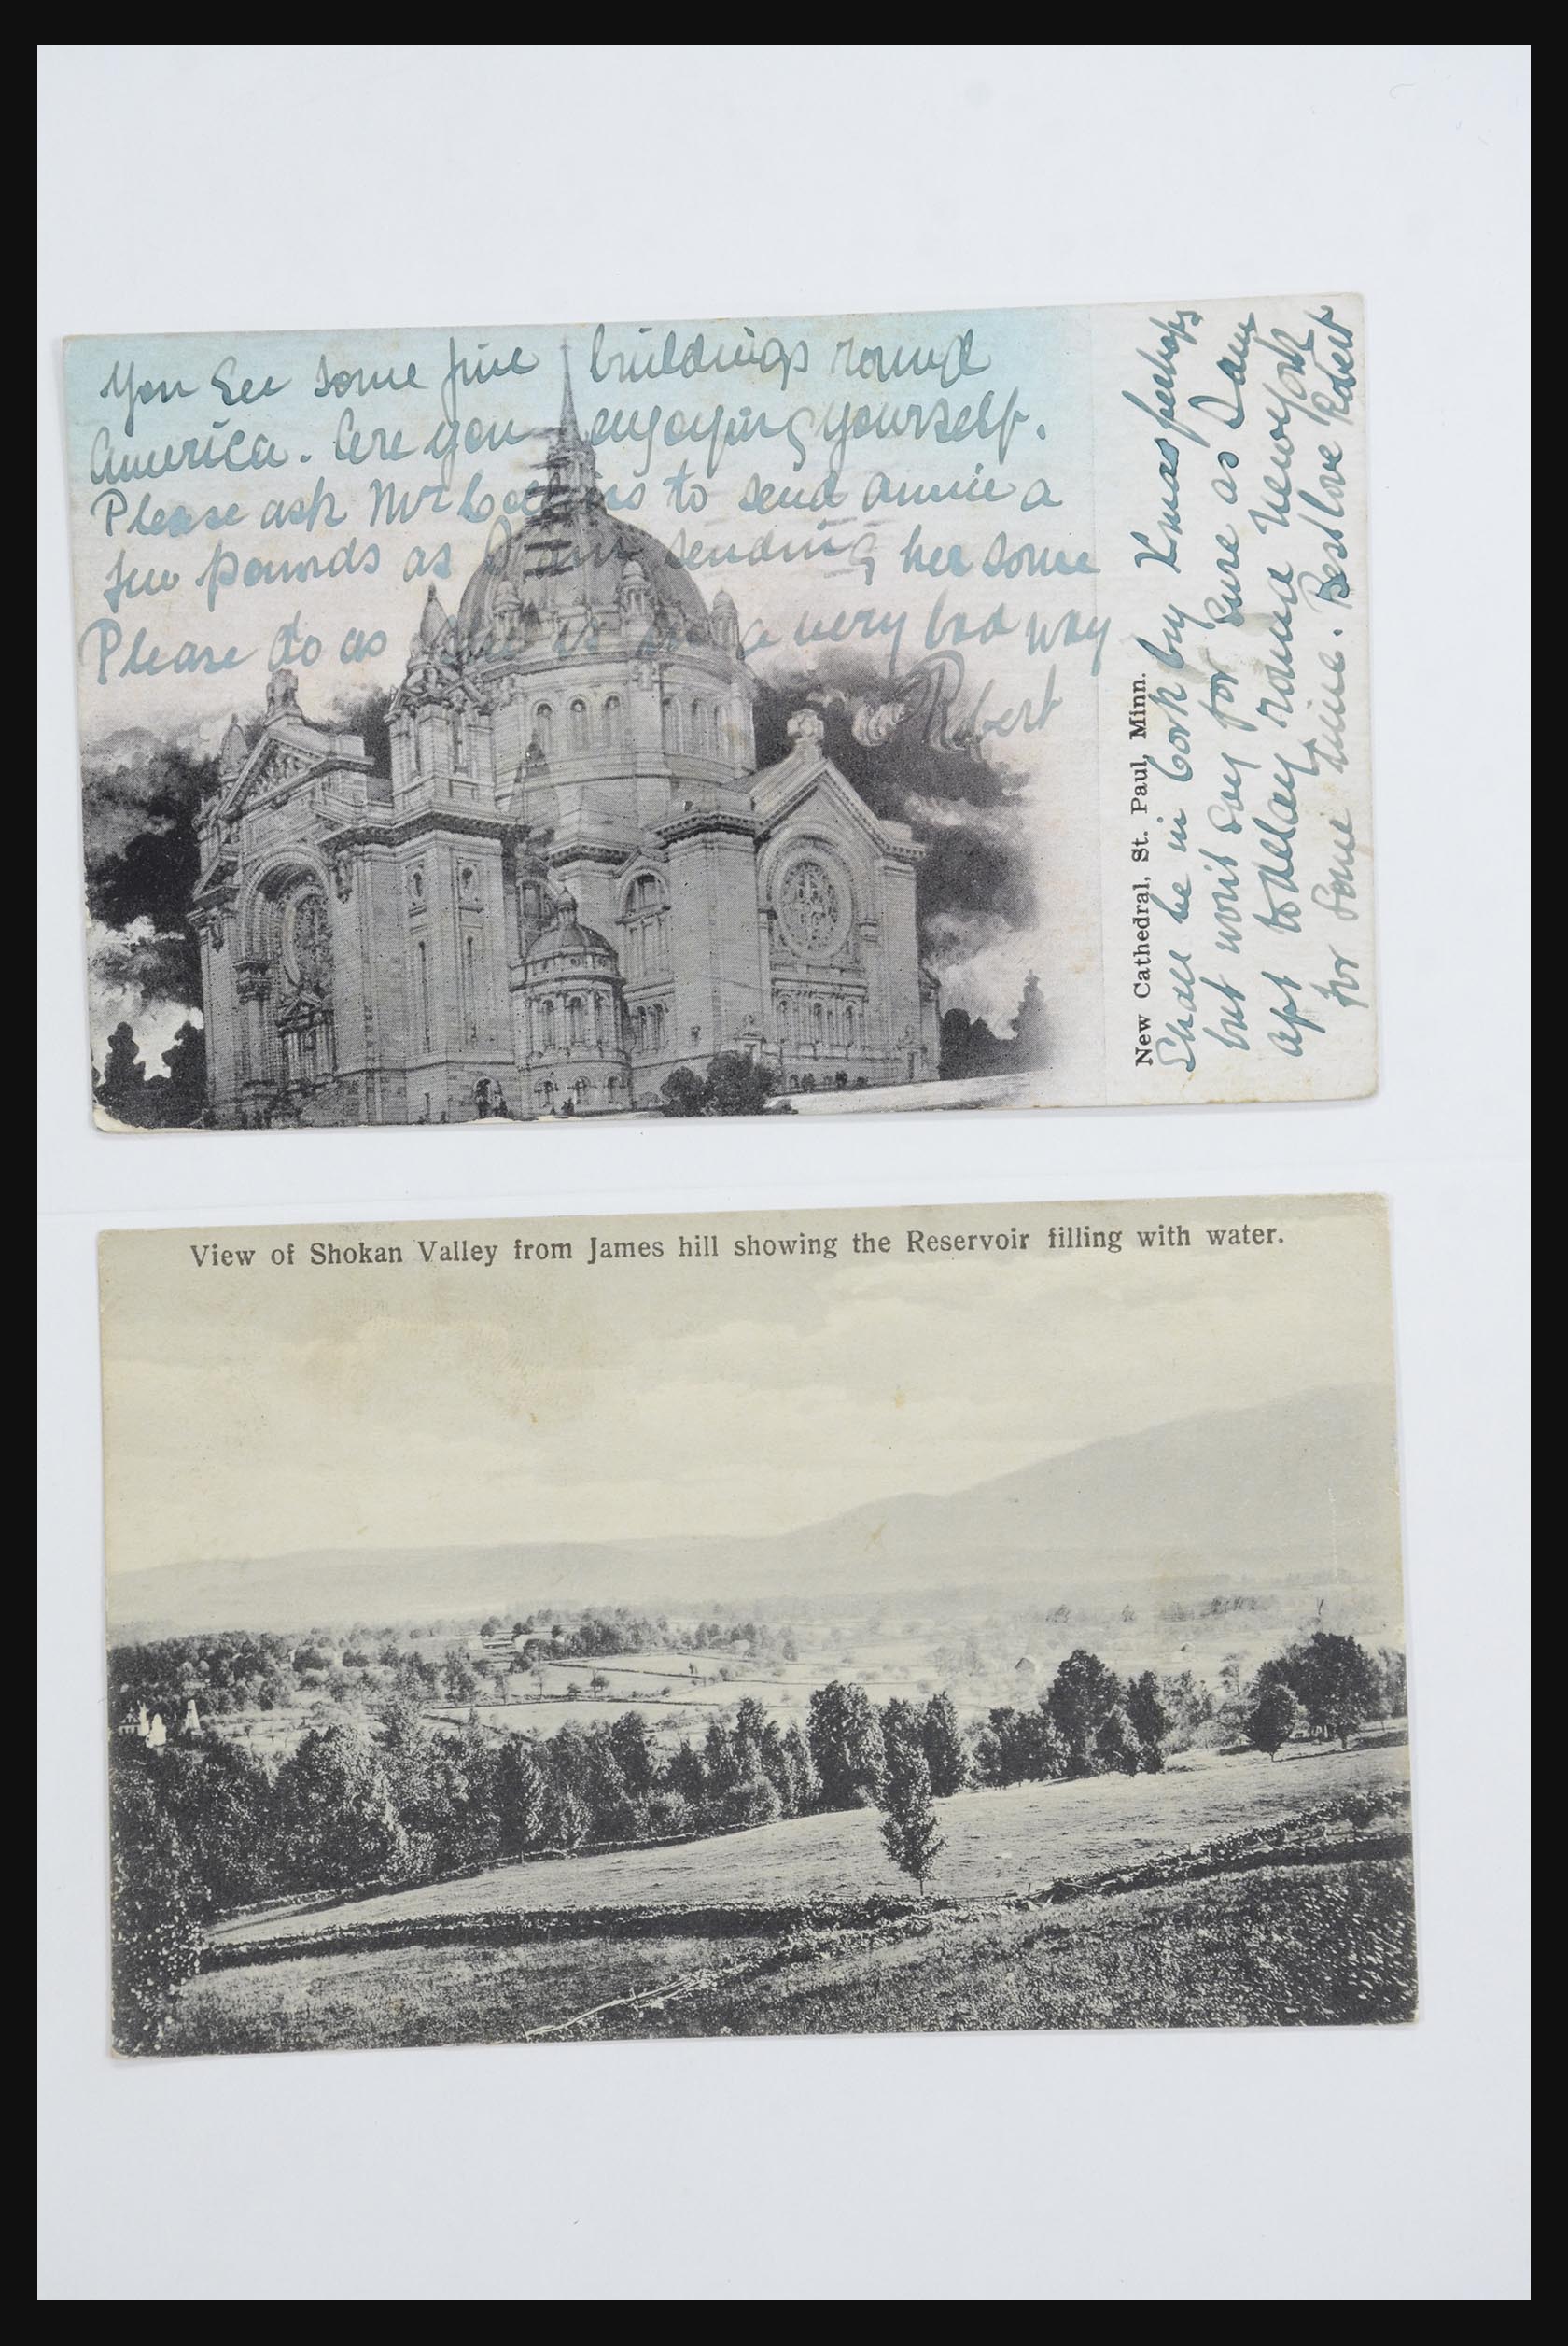 You See some fine buildings round
America. Are you enjoying yourself.
Please ask Mr to send annie a
few pounds as I am sending her some
Please do as she is in a very bad way
Robert
New Cathedral, St. Paul, Minn.
Shall be in Cork by Xmas perhaps
but wont say for sure as I am
apt to delay round New York
for some time. Best love Robert
View of Shokan Valley from James hill showing the Reservoir filling with water.